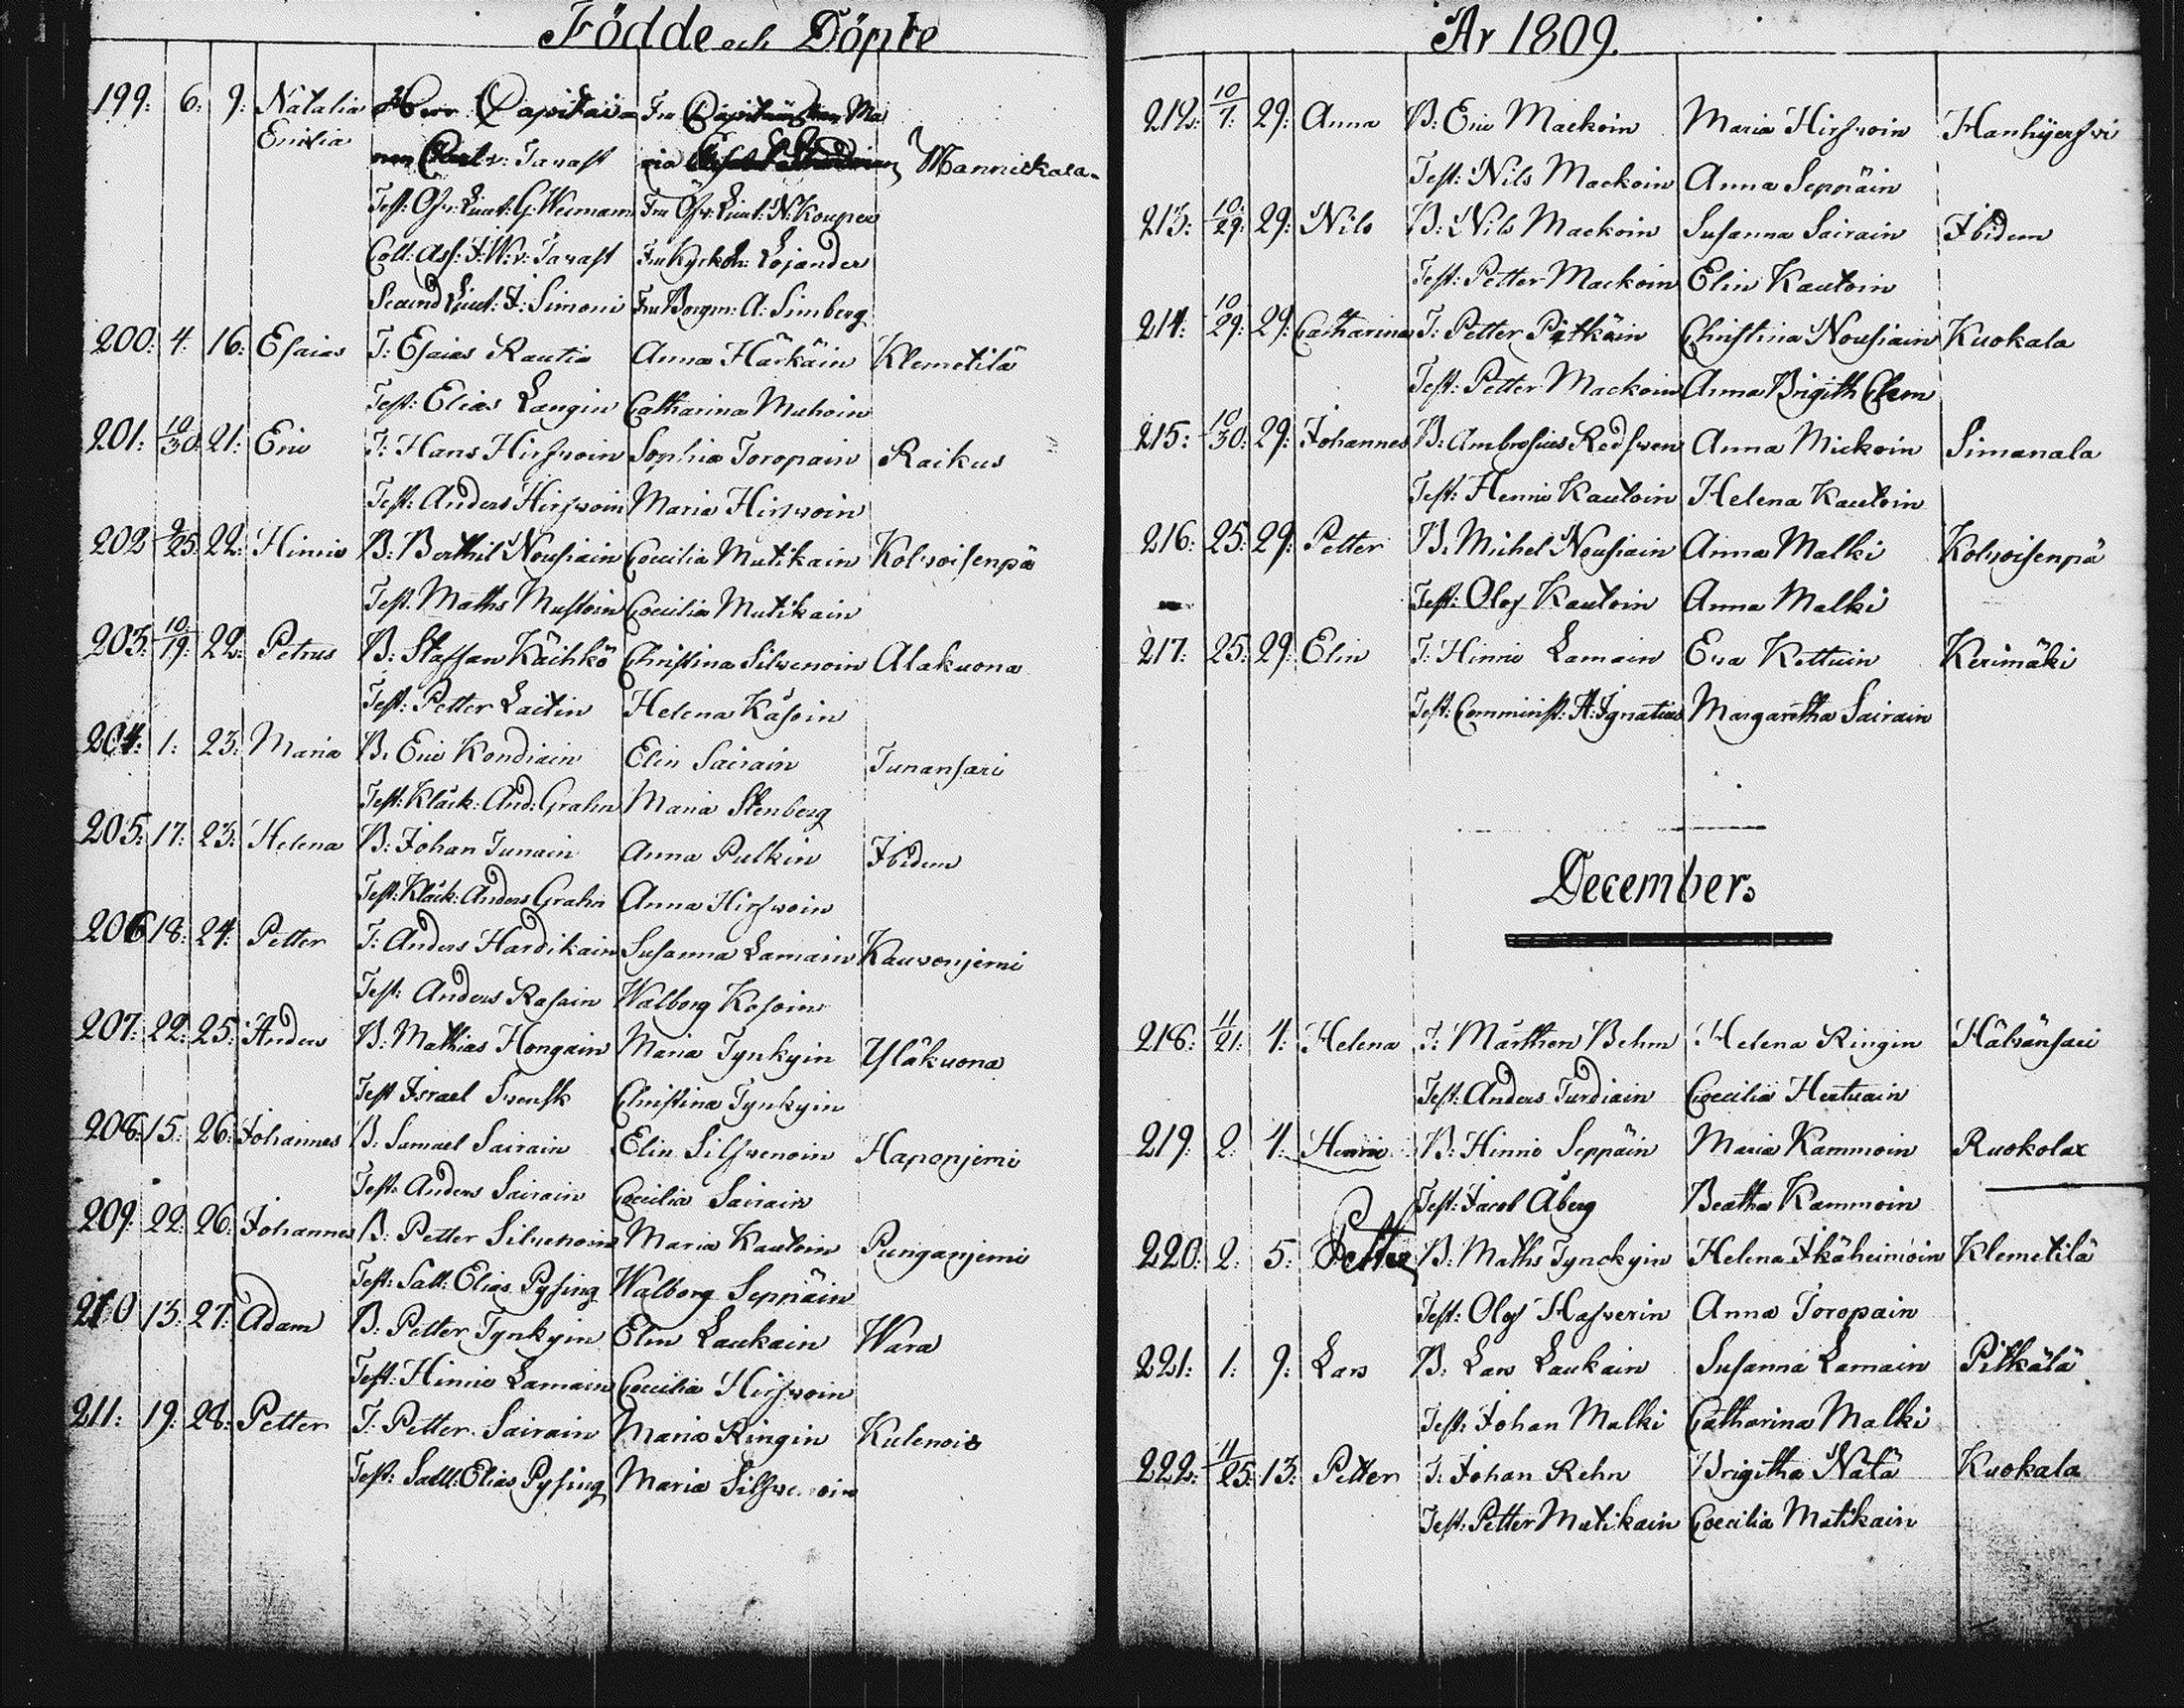 Födde och Döpte
199: 6: 9: Natalia Herr Capitai- Fru Capitänskan Ma
Emilia nen Carl v: Tavast ria Mannickala
Test: Öfv: Lieut: G: Weimarn Fru Öfv: Lieut: N: Kouper
Coll: Ass: F: W: v: Tavast Fru Kyrkoh: Lojander
Secund Lieut: F: Simoni Fru Borgm: A: Simberg
200: 4: 16: Esaias T: Esaias Rautia Anna Härkäin Klemetilä
Test: Elias Langin Catharina Muhoin
201: 10/30: 21: Eric T: Hans Hirfwoin Sophia Toropain Raikus
Test: Anders Hirfwoin Maria Hirfwoin
202 9/25: 22: Hinric B: Berthil Nousiain Coecilia Mutikain Kolvoisenpä
Test: Maths Mustoin Coecilia Mutikain
203: 10/19: 22: Petrus B: Staffan Käihkö Christina Silvenoin Alakuona
Test: Petter Laitin Helena Käsoin
204: 1: 23: Maria B: Eric Kondiain Elin Sairain Junansari
Test: Kläck: And: Grahn Maria Stenberg
205: 17: 23: Helena B: Johan Junain Anna Pulkin Ibidem
Test: Kläck: Anders Grahn Anna Hirfwoin
206 18: 24: Petter T: Anders Hardikain Susanna Lamain Kauvonjemi
Test: Anders Rasain Walborg Kosoin
207: 22: 25: Anders B: Mathias Hongain Maria Tynkyin Yläkuona
Test Israel Svensk Christina Tynkyin
208: 15: 26: Johannes B: Samuel Sairain Elin Silfvenoin Haponjemi
Test: Anders Sairain Coecilia Sairain
209: 22: 26: Johannes B: Petter Silvenoin Maria Kautoin Punganjemi
Test: Sall: Elias Pysing Walborg Seppäin
210 13: 27: Adam B: Petter Tynkyin Elin Laukain Wara
Test: Hinric Lamain Coecilia Hirfwoin
211: 19: 28: Petter T: Petter Sairain Maria Ringin Kulenois
Test: Sall: Elias Pysing Maria Silfvenoin
År 1809.
212: 10/7: 29: Anna B: Eric Mackoin Maria Hirfwoin Hanhijerfvi
Test: Nils Mackoin Anna Seppäin
213: 10/29: 29: Nils B: Nils Mackoin Susanna Sairain Ibidem
Test: Petter Mackoin Elin Kautoin
214: 10/29: 29: Catharina T: Petter Pitkäin Christina Nousiain Kuokala
Test: Petter Mackoin Anna Brigith Clem
215: 10/30: 29: Johannes B: Ambrosius Redfwen Anna Mickoin Simanala
Test: Henric Kautoin Helena Kautoin
216: 25: 29: Petter B: Michel Nousiain Anna Malki Kolvoisenpä
Test: Olof Kautoin Anna Malki
217: 25: 29: Elin T: Hinric Lamain Eva Kettuin Kerimäki
Test: Comminist: A: Ignatius Margaretha Sairain
December.
218: 11/21: 4: Helena T: Mårthen Behm Helena Ringin Hälvänsari
Test: Anders Turdiain Coecilia Hertuain
219: 2: 4: Henric B: Hinric Seppäin Maria Kammoin Ruokolax
Test: Jacob Åberg Beatha Kammoin
220: 2: 5: Petter B: Maths Tynckyin Helena Ikäheimoin Klemetilä
Test: Olof Hasverin Anna Toropain
221: 1: 9: Lars B: Lars Laukain Susanna Lamain Pitkälä
Test: Johan Malki Catharina Malki
222: 11/25: 13: Petter T: Johan Rehn Brigitha Nätä Kuokala
Test: Petter Mutikain Coecilia Mutikain